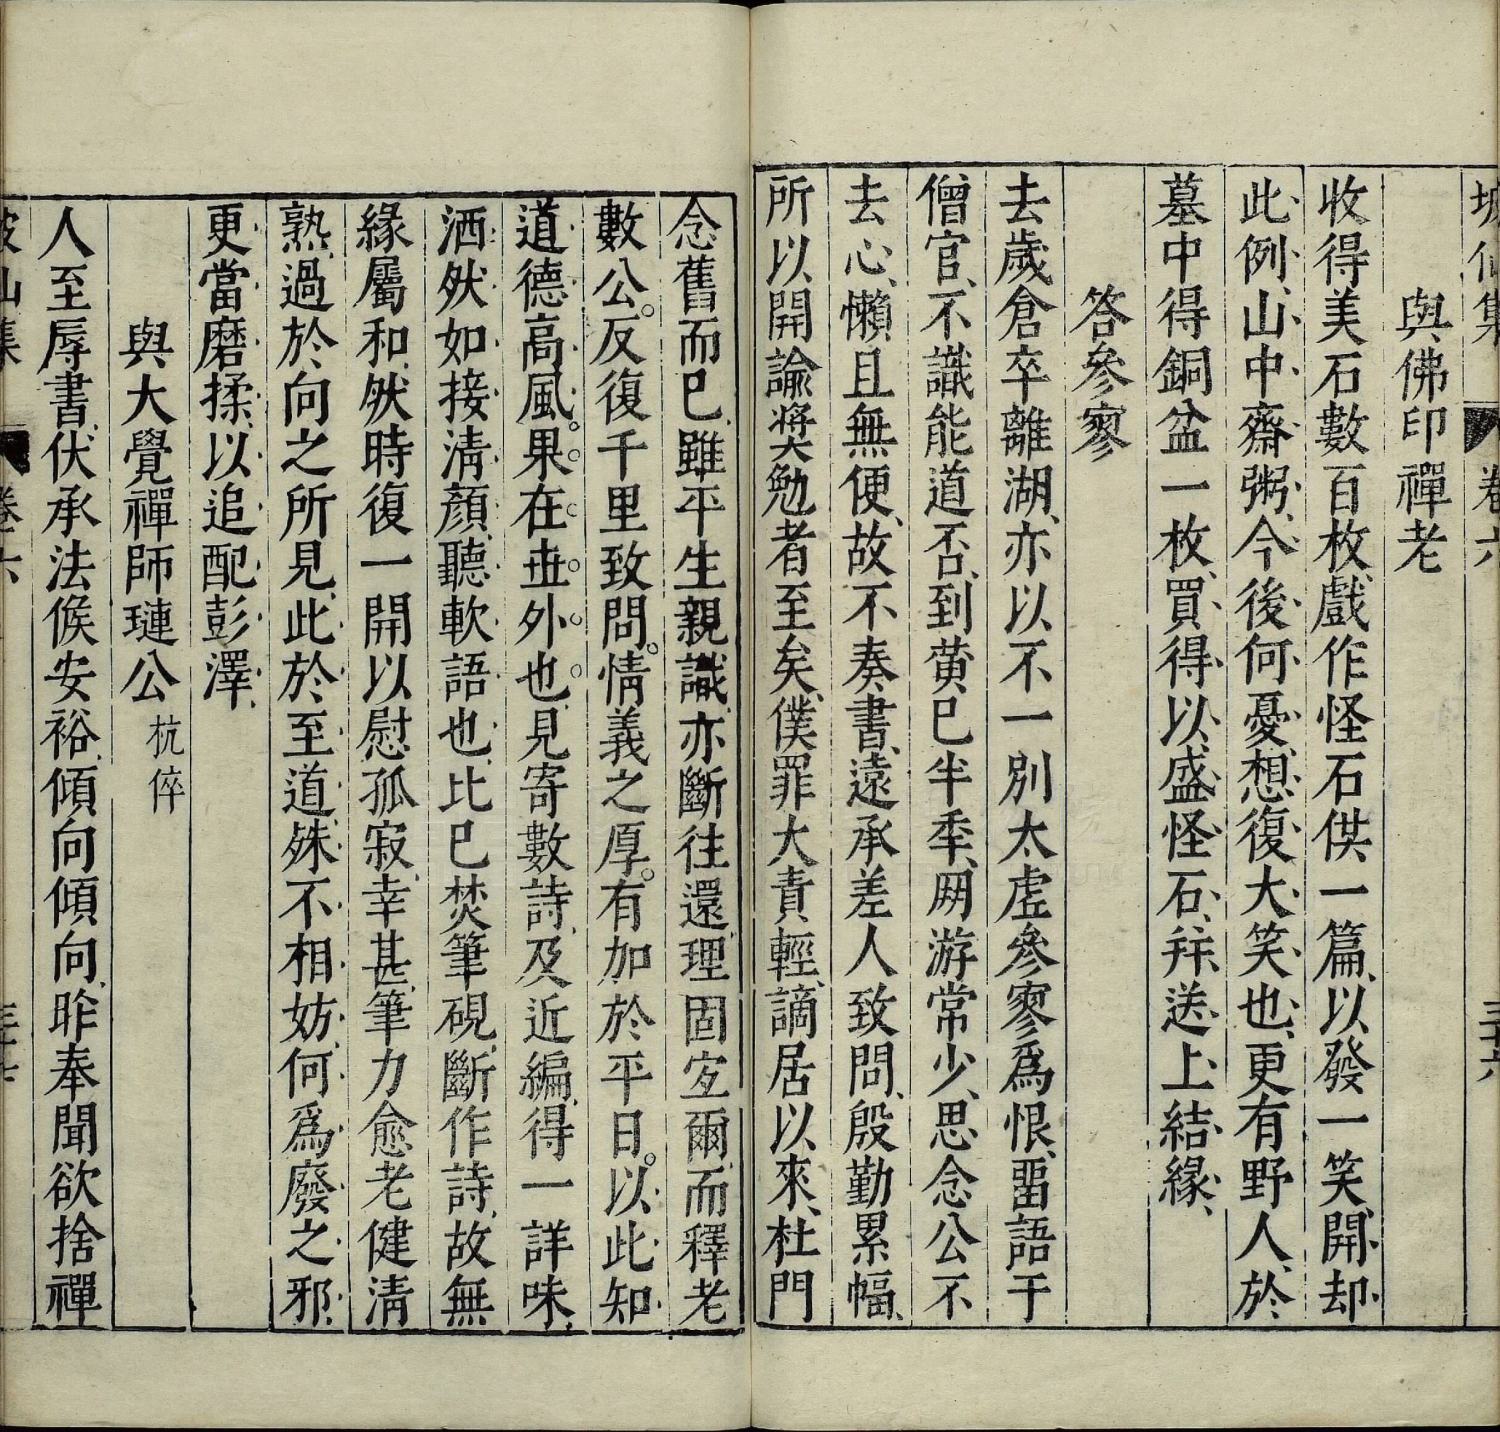 坡仙集 卷六 三十六
與佛印禪老
收得美石數百枚戲作怪石供一篇以發一笑開却
此例山中齋粥今後何憂想復大笑也更有野人於
墓中得銅盆一枚買得以盛怪石并送上結緣
答參寥
去歲倉卒離湖亦以不一別太虛參寥爲恨畱語于
僧官不識能道否到黄已半秊朋游常少思念公不
去心懶且無便故不奏書遠承差人致問殷勤累幅
所以開諭奬勉者至矣僕罪大責輕謫居以來杜門
念舊而已雖平生親識亦斷往還理固宐爾而釋老
數公反復千里致問情義之厚有加於平日以此知
道德高風果在世外也見寄數詩及近編得一詳味
洒然如接清顏聽軟語也比已焚筆硯斷作詩故無
緣屬和然時復一開以慰孤寂幸甚筆力愈老健清
熟過於向之所見此於至道殊不相妨何爲廢之邪
更當磨揉以追配彭澤
與大覺禪師璉公 杭倅
人至辱書伏承法候安裕傾向傾向昨奉聞欲捨禪